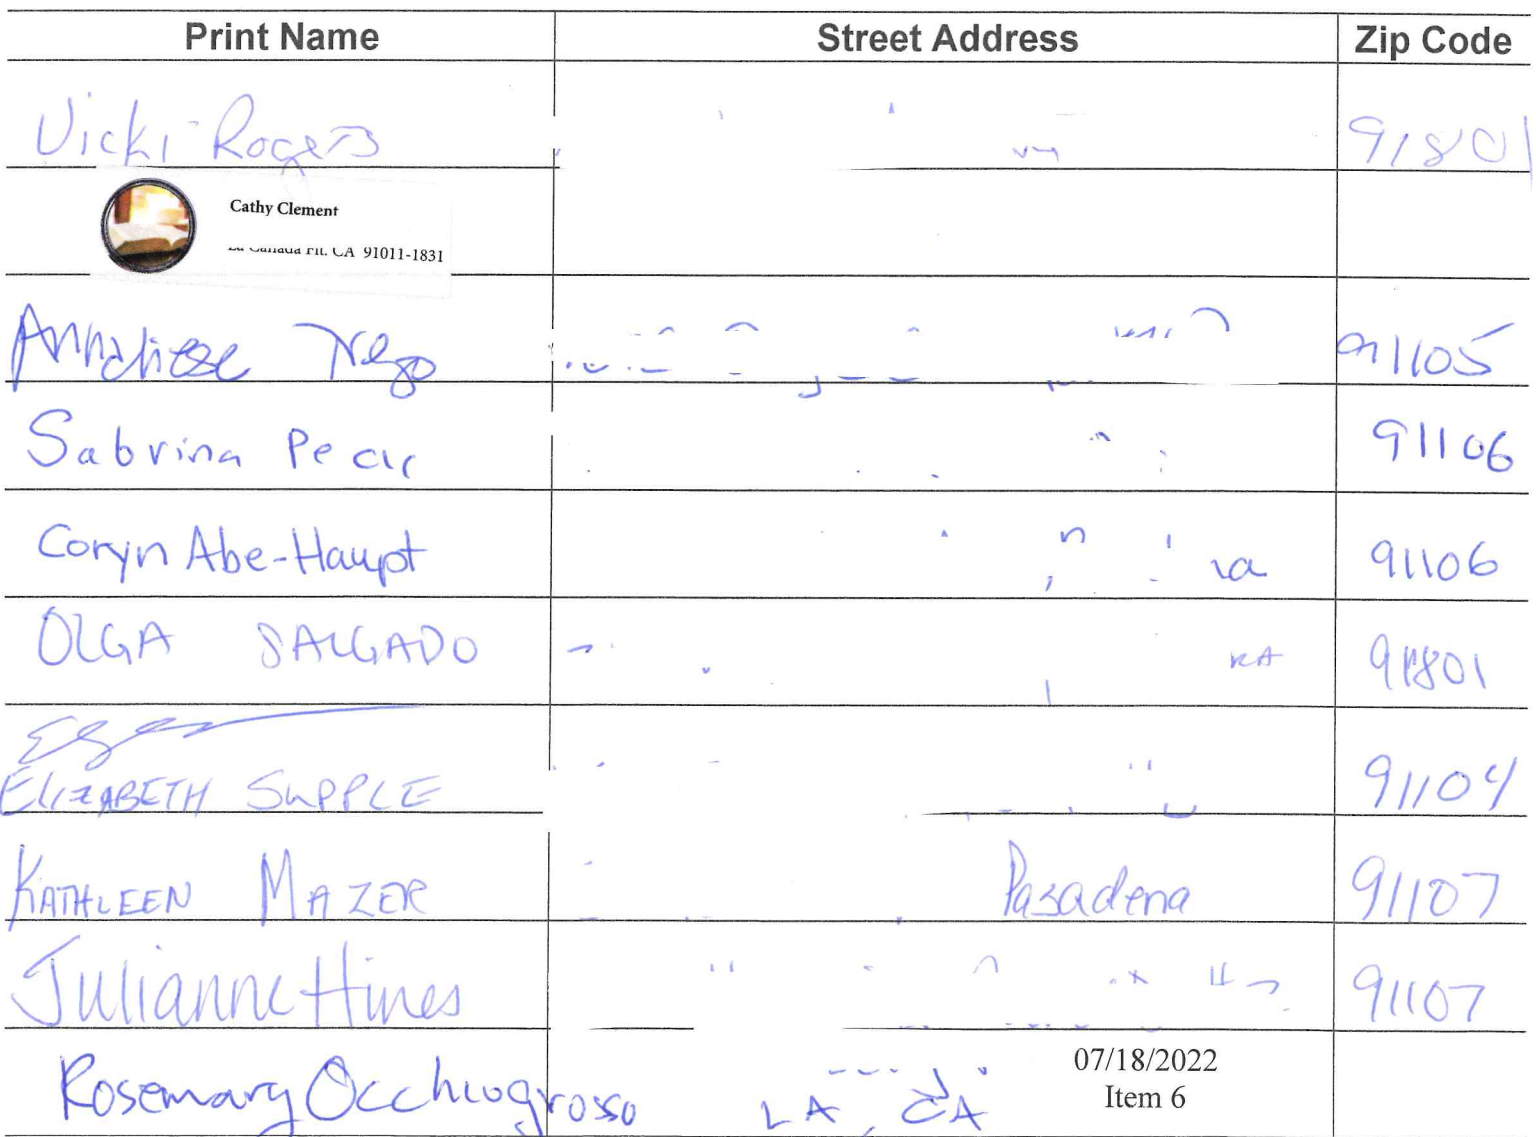 Print Name Street Address Zip Code
Vicki Rogers 91801
Cathy Clement
La Canada Flt. CA 91011-1831
Annaliese 91105
Sabrina Pear 91106
Coryn Abe-Haupt 91106
OLGA SALGADO 91801
ELIZABETH SUPPLE 91104
KATHLEEN MAZER Pasadena 91107
Julianne Hines 91107
07/18/2022
Item 6
Rosemary Occhiogrosso LA, CA